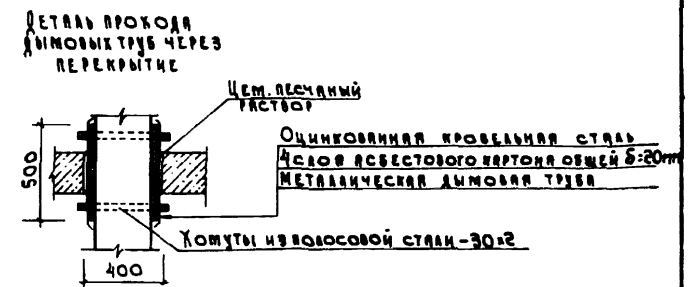 Деталь прохода
дымовых труб через
перекрытие
Цем. песчаный
раствор
Оцинкованная кровельная сталь
4 слоя асбестового картона общей δ=20mm
Металлическая дымовая труба
500
Хомуты из полосовой стали -30×2
400